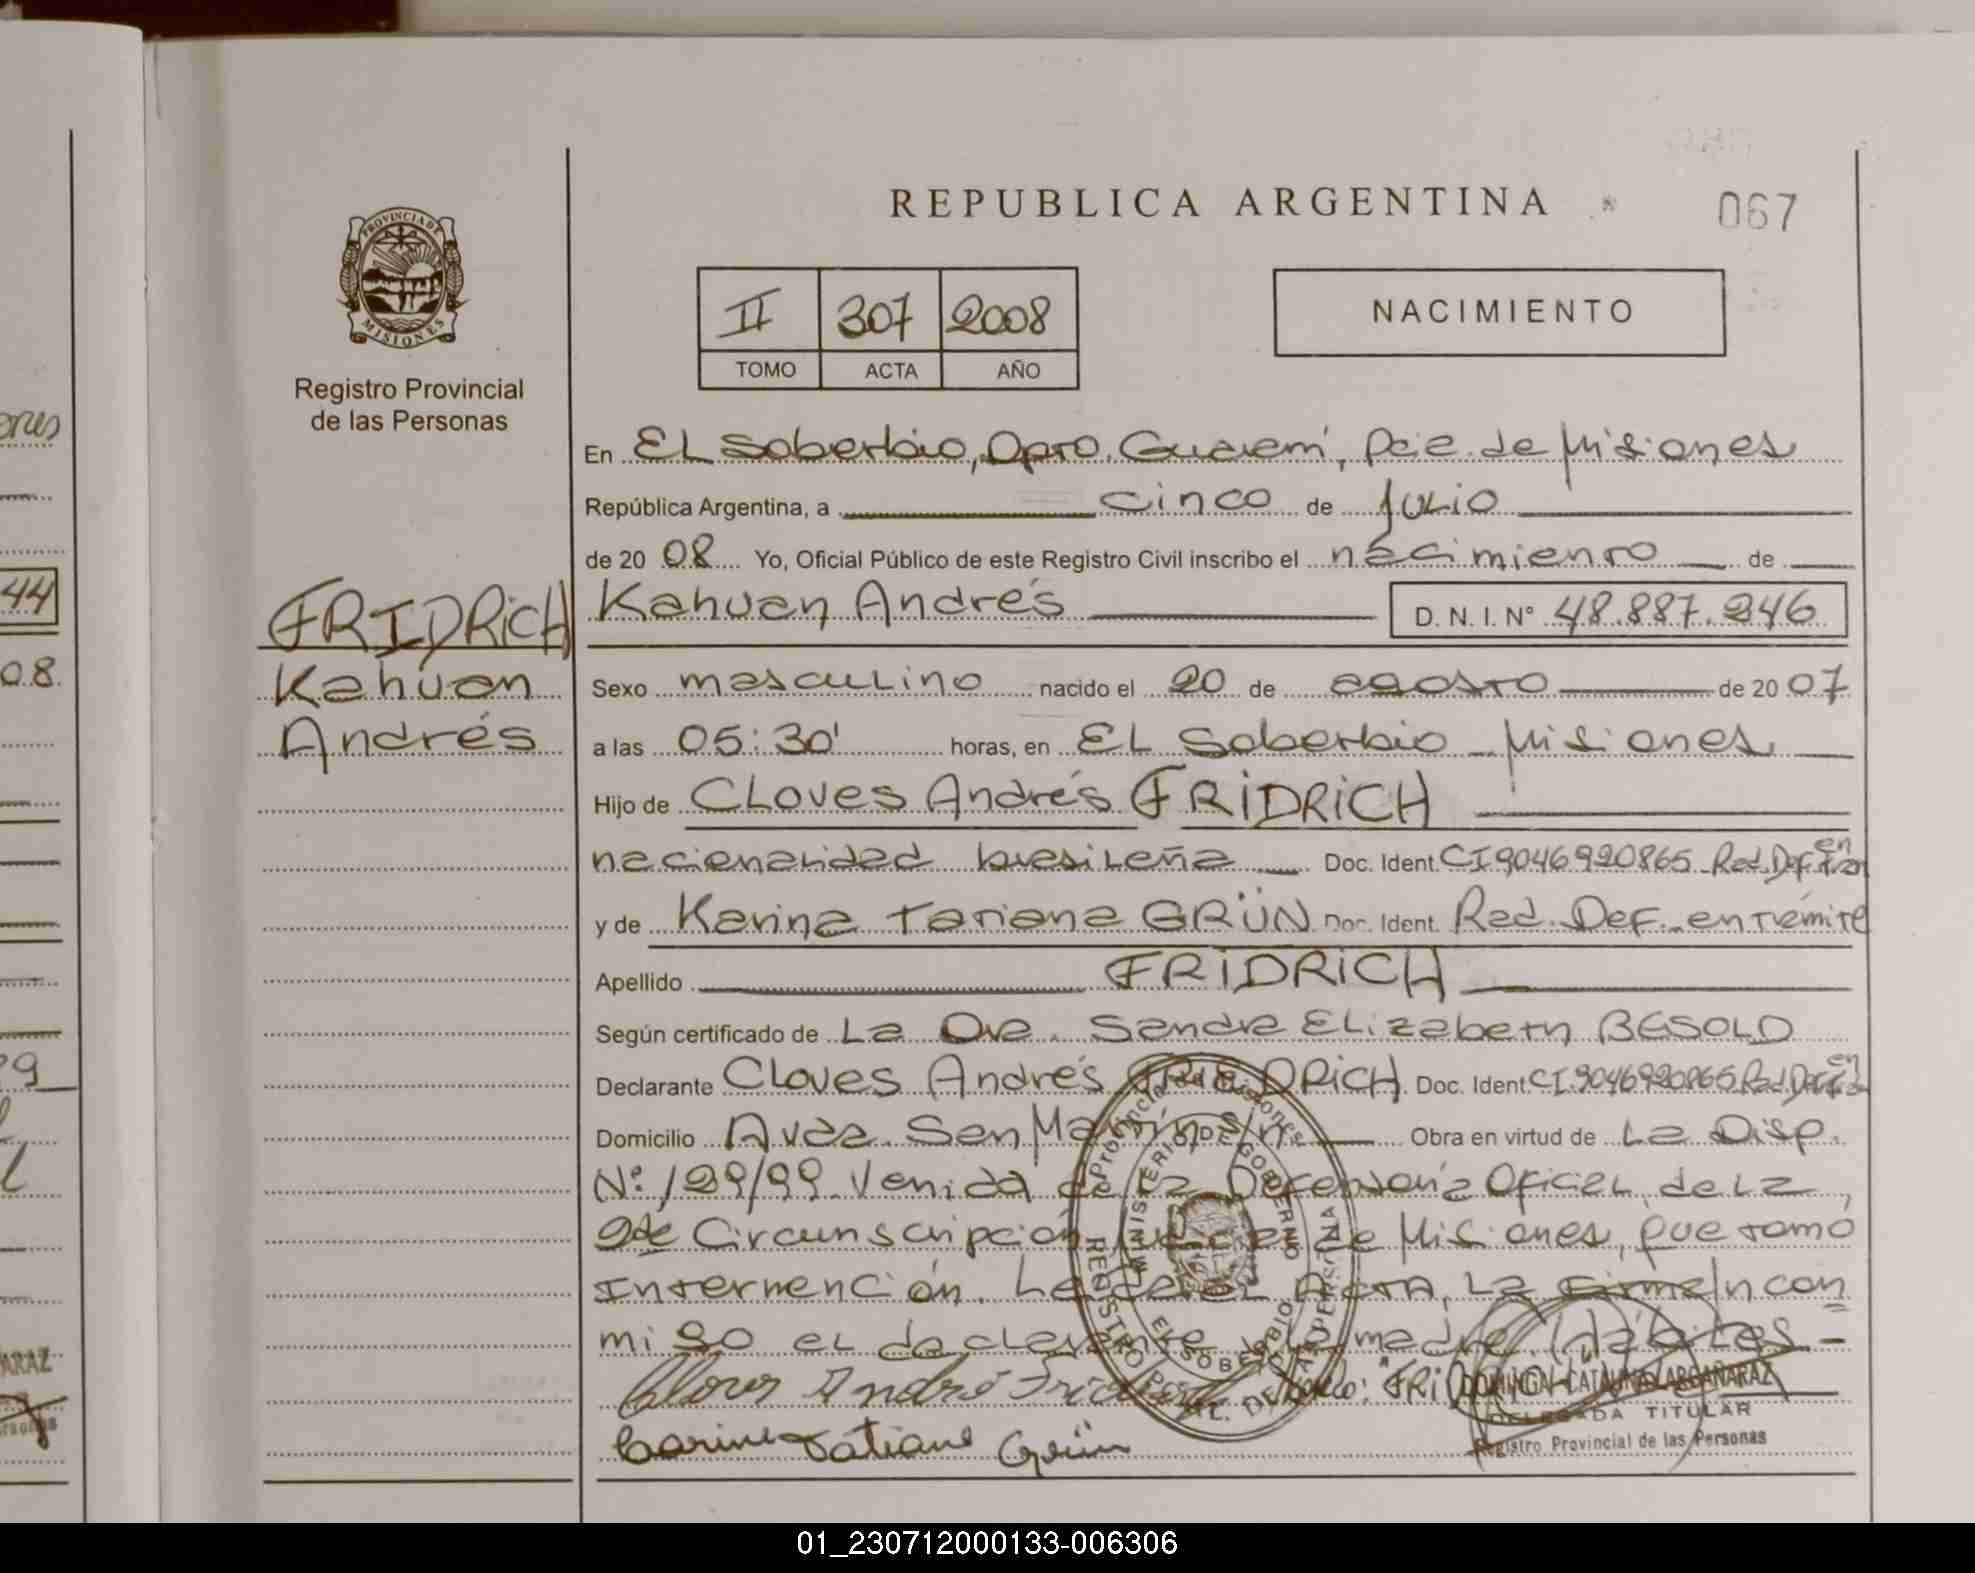 REPUBLICA ARGENTINA
067
PROVINCIA DE
MISIONES
Registro Provincial
de las Personas
II 307 2008
TOMO ACTA AÑO
NACIMIENTO
En EL Soberbio, Dpto. Guaraní, Pcia de Misiones
República Argentina, a cinco de Julio
de 20 08 Yo, Oficial Público de este Registro Civil inscribo el nacimiento de
FRIDRICH
Kahuan
Andrés
Kahuan Andrés D. N. I. Nº 48.887.246
Sexo masculino nacido el 20 de agosto de 20 07
a las 05:30' horas, en EL Soberbio Misiones
Hijo de Cloves Andrés FRIDRICH
nacionalidad brasileña Doc. Ident. CI 9046920865 Rad. Def. en
y de Karina Tatiana GRÜN Doc. Ident. Rad. Def. en trámite
Apellido FRIDRICH
Según certificado de La Dra. Sandra Elizabeth BESOLD
Declarante Cloves Andrés FRIEDRICH Doc. Ident. CI. 9046920865 Rad. Def. en
Domicilio Avda. San Martín s/n Obra en virtud de La Disp.
Nº 129/99 Venida de la Defensoría Oficial de la
2da Circunscripción de Misiones, que tomó
Intervención. Leída el Acta, La Firman con
migo el declarante y la madre.
Cloves André
Carine Tatiane Grün
DOMINGA CATALINA ARGAÑARAZ
DELEGADA TITULAR
Registro Provincial de las Personas
Provincia de Misiones
MINISTERIO DE GOBIERNO
EL SOBERBIO
44
08
ARAZ
01_230712000133-006306